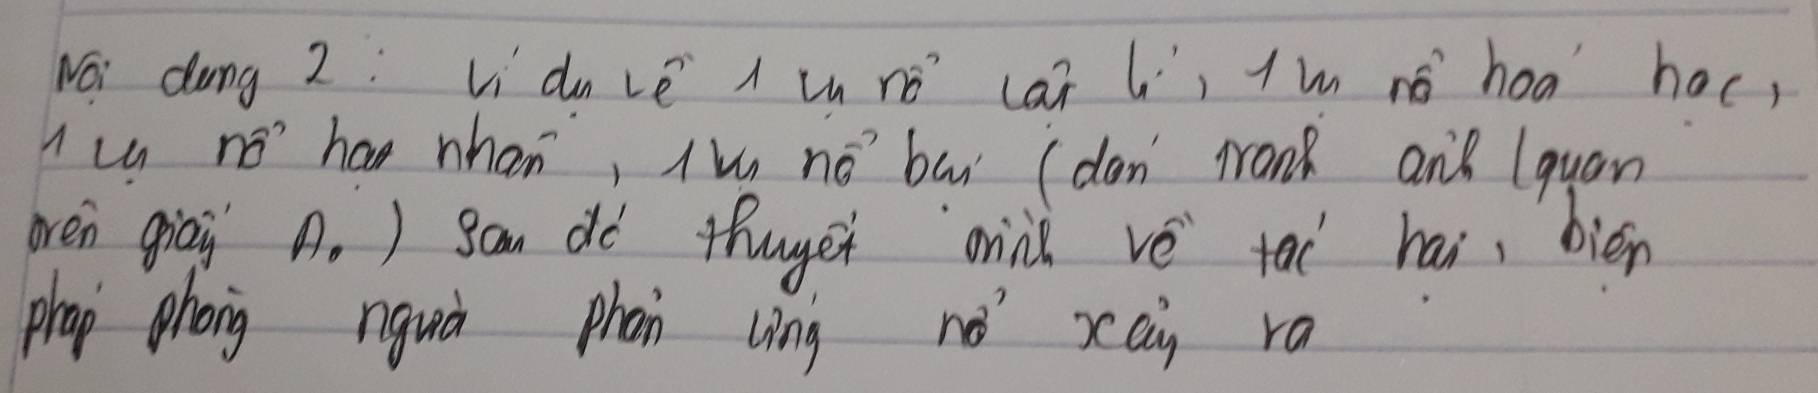 Nội dung 2: Ví dụ về 1 vụ nổ vật lí, 1 vụ nổ hoá học,
1 vụ nổ hạt nhân, 1 vụ nổ bụi (dán tranh ảnh lquan
trên giấy A0) Sau đó thuyết minh về tác hại, biện
pháp phòng ngừa phản ứng nổ xảy ra